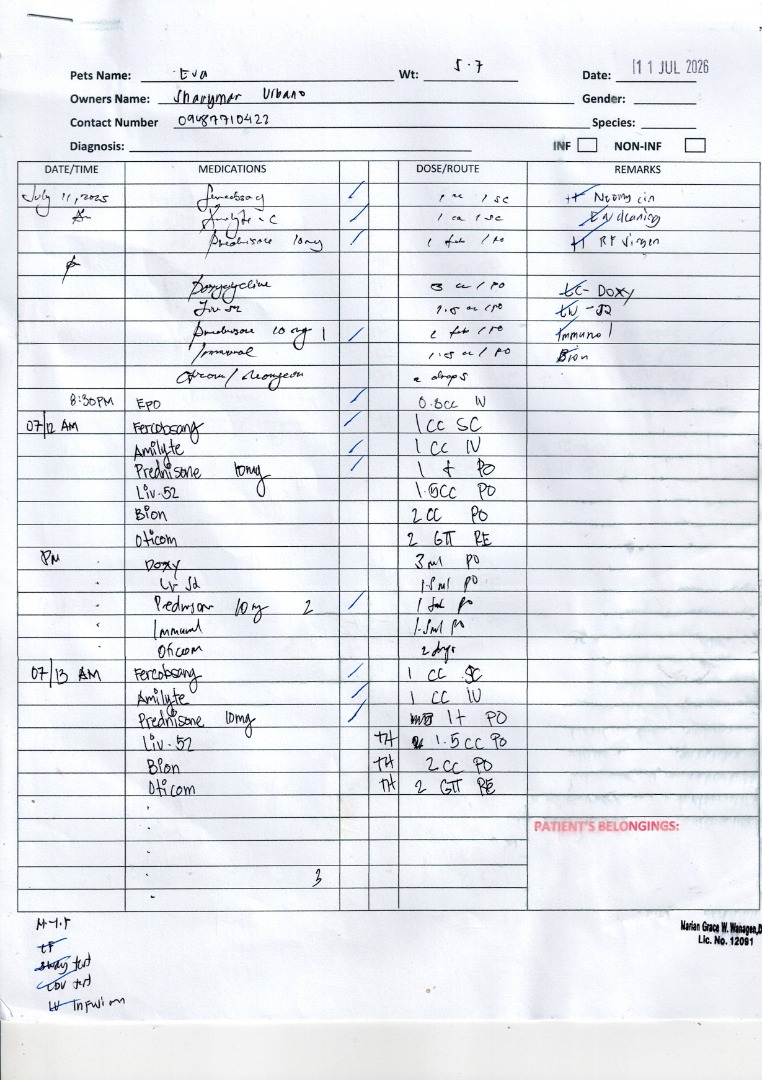 Pets Name: Eva Wt: 5.7 Date: 11 JUL 2026
Owners Name: Sharymar Urbano Gender:
Contact Number 09487710422 Species:
Diagnosis: INF NON-INF
DATE/TIME MEDICATIONS DOSE/ROUTE REMARKS
July 11, 2025 1 cc / SC
1 cc / SC
Prednisone 10mg 1 tab / PO
Doxycycline 3 cc / PO TC- Doxy
Liv 52 1.5 cc / PO
Prednisone 10 mg 1 tab / PO Immunol
Immunal 1.5 cc / PO Bion
2 drops
8:30PM EPO 0.8cc IV
07/12 AM Fercobsang 1 cc SC
Amilyte 1 cc IV
Prednisone 10mg 1 t PO
Liv-52 1.5CC PO
Bion 2 CC PO
Oticom 2 GTT RE
PM Doxy 3 ml PO
1.5 ml PO
10 mg 2 1 tab PO
Immunal 1.5ml PO
Oticom 2 drops
07/13 AM Fercobsang 1 CC SC
Amilyte 1 CC IV
Prednisone 10mg 1 t PO
Liv-52 TH 1.5 CC PO
Bion TH 2 CC PO
Oticom TH 2 GTT RE
PATIENT'S BELONGINGS:
3
Marian Grace W. Wanagen, D
Lic. No. 12091
test
CDV test
Infusion